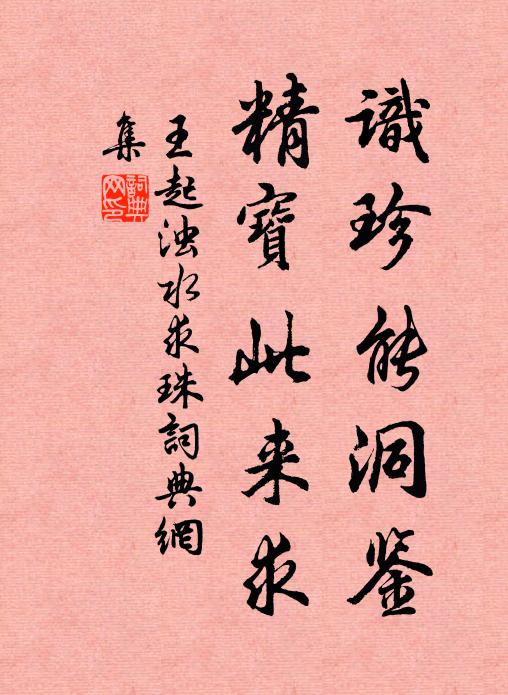 識珍能洞鉴
精寶此来求
王起浊水求珠詞典網
集
詞典
网印